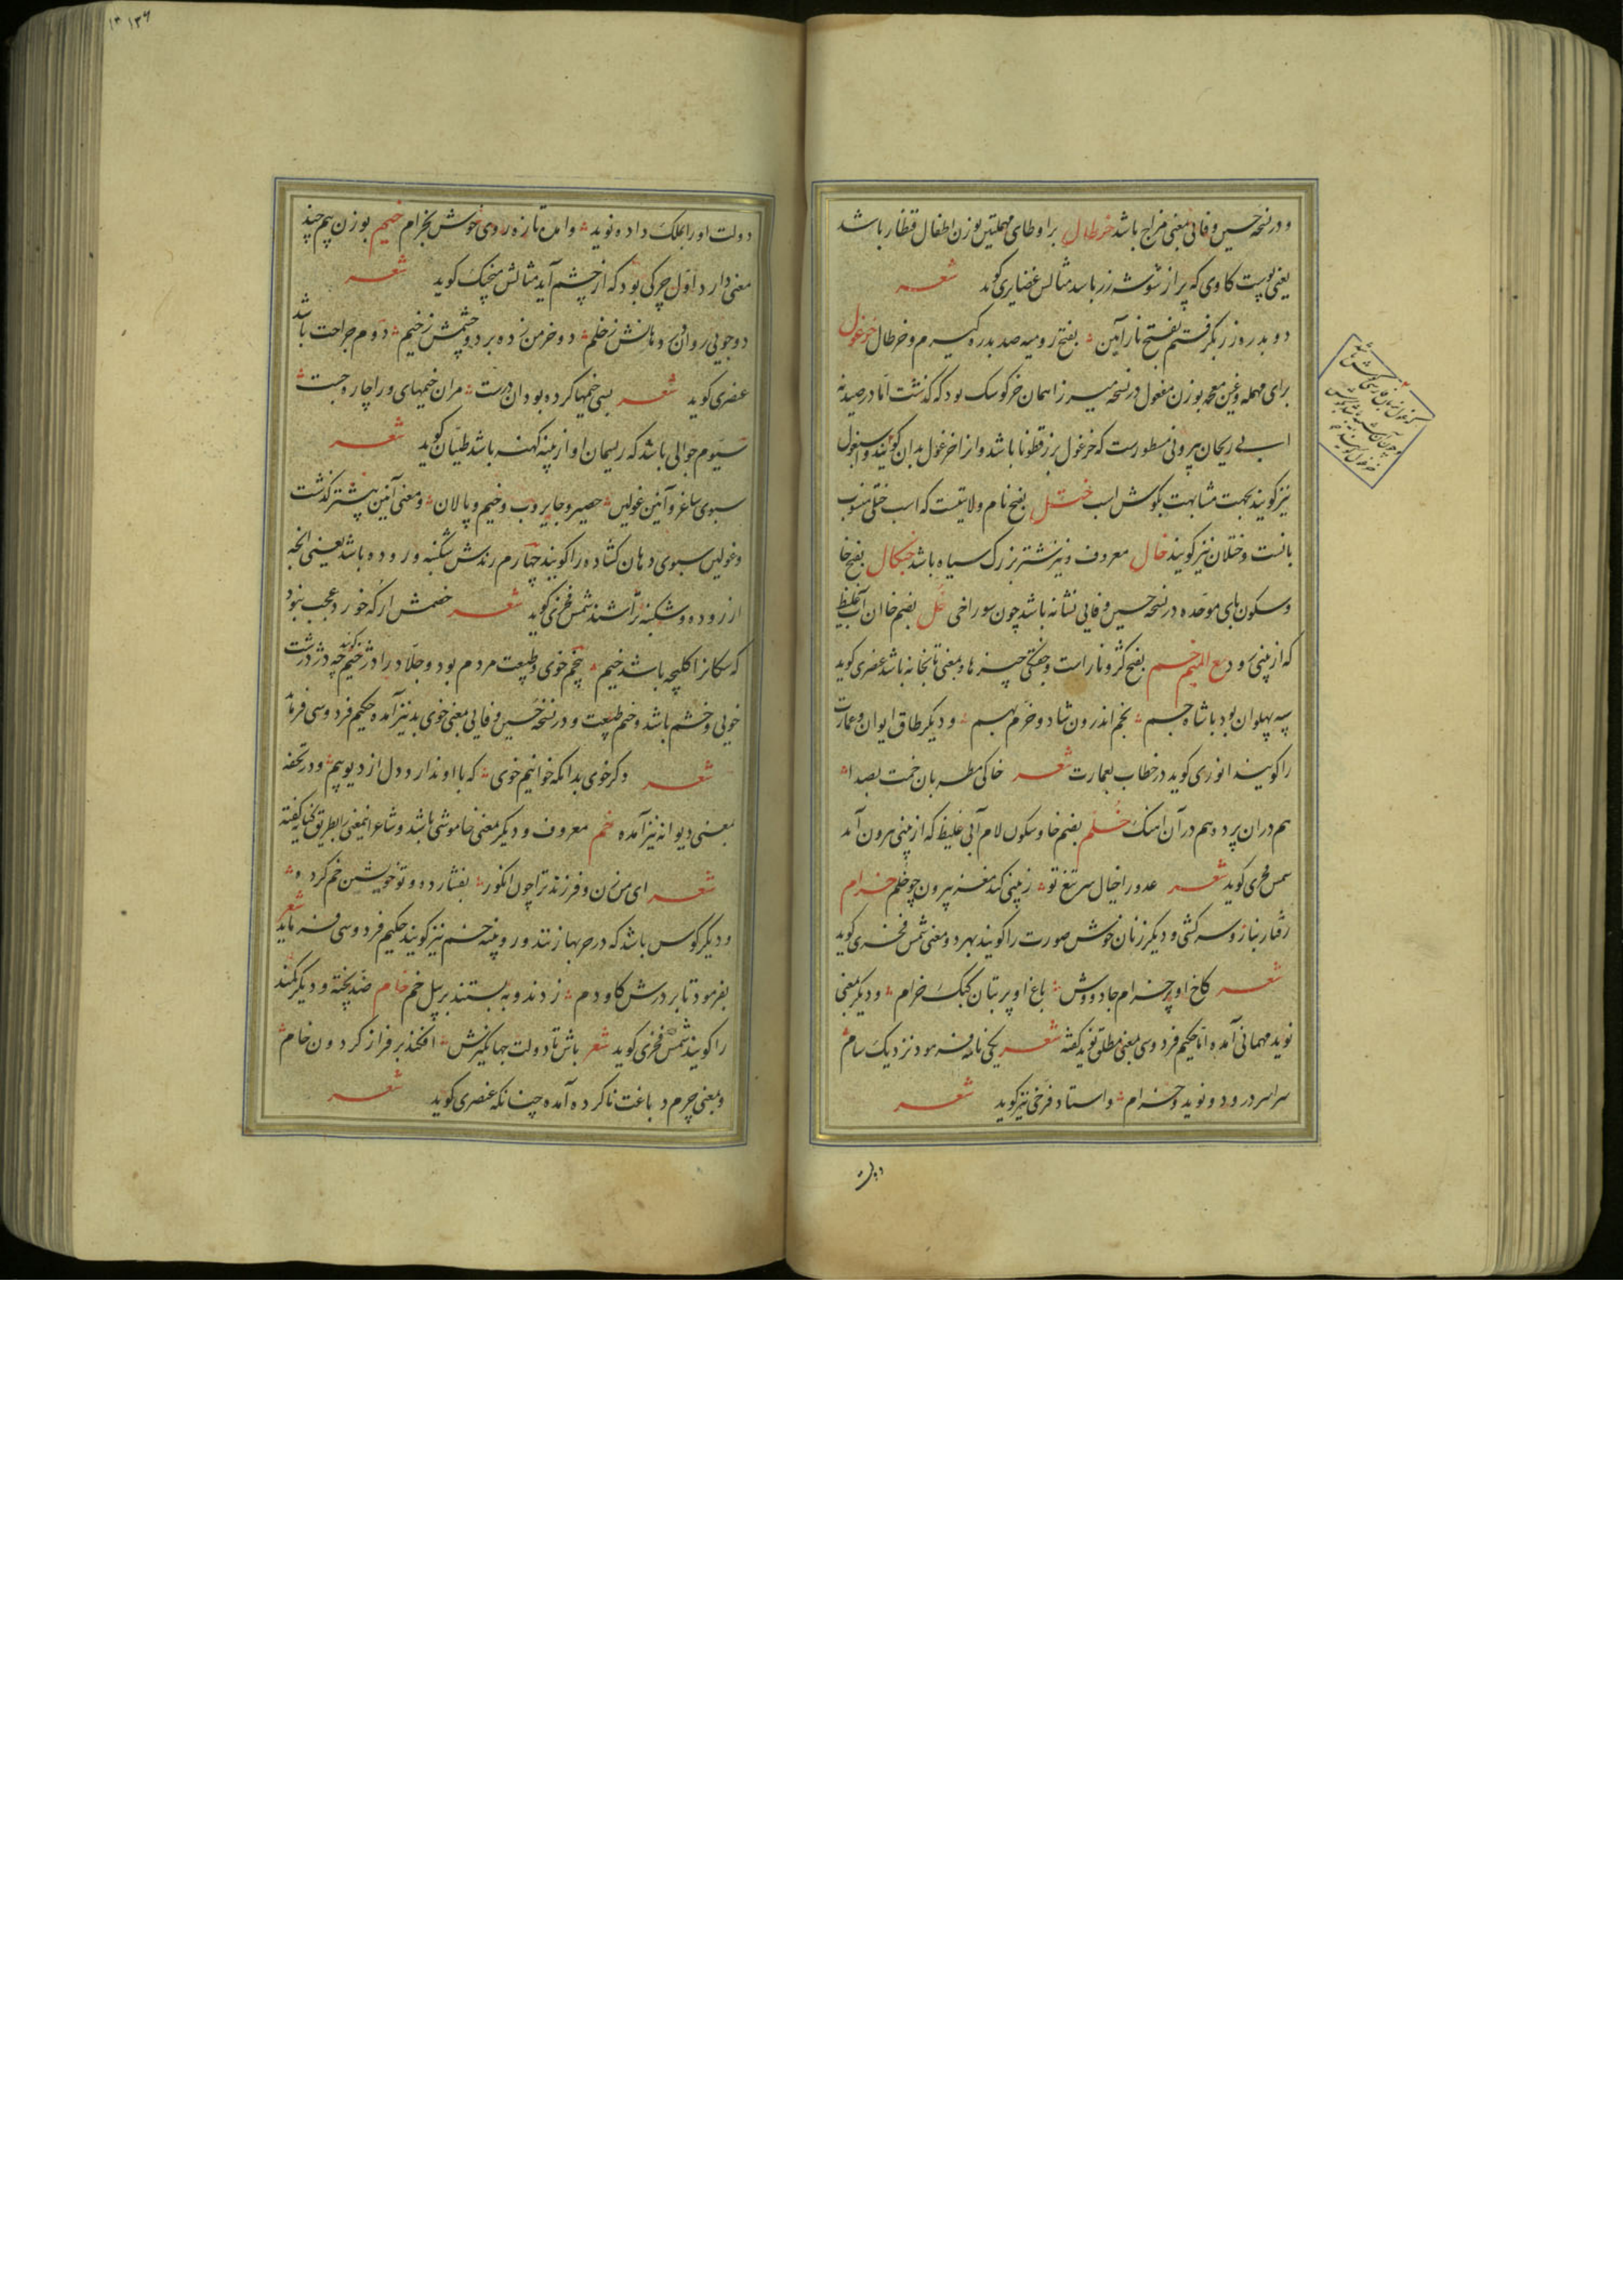 و در نسخه حسین وفائی بمعنی مزاج باشد خرطال برا و طای مهملتین بوزن اطفال قنطار باشد
یعنی پوست کاوی که پر از شوشه زر باشد مثالش غضایری کوید شعر
دو بدره زر بکرفتم بفتح ناراین ؞ بفتح رومیه صد بدره کیرم و خرطال خرغول
برای مهمله و غین معجمه بوزن مفعول در نسخه میرزا همان خرکوشک بود که کذشت اما در صیدنه
ابی ریحان بیرونی مسطورست که خرغول بزرقطونا باشد و انرا خرغول بدان کویند و اسبغول
نیز کویند بجهت مشابهت بکوش اسب ختل بفتح نام ولایتیست که اسب ختلی منسوب
بانست و ختلان نیز کویند خال معروف و نیز شتر بزرک سیاه باشد خبکال بفتح خا
و سکون بای موحده در نسخه حسین وفایی نشانه باشد چون سوراخی خل بضم خا ان آب غلیظ
که از بینی رود مع المیم خم بفتح کژ و ناراست و خفتکی چیزها و بمعنی تابخانه باشد عنصری کوید
سپه پهلوان بود با شاه جم ؞ بخم اندرون شاد و خرم بهم ؞ و دیکر طاق ایوان و عمارت
را کویند انوری کوید در خطاب بعمارت شعر خاکی مطربان خمت بصدا ؞
هم دران پرده هم در آن آهنک خلم بضم خا و سکون لام آبی غلیظ که از بینی بیرون آید
شمس فخری کوید شعر عدو را خیال سر تیغ تو ؞ ز بینی کند مغز بیرون چو خلم خرام
رفتار بناز و سرکشی و دیکر زنان خوش صورت را کویند بهر دو معنی شمس فخری کوید
شعر کاخ او پر خرام جادووش ؞ باغ او پر بتان کبک خرام ؞ و دیکر بمعنی
نوید مهمانی آمده اما حکیم فردوسی بمعنی مطلق نوید کفته شعر یکی نامه فرمود نزدیک سام ؞
سراسر درود و نوید و خرام ؞ و استاد فرخی نیز کوید شعر
دولت
دولت او را بملک داده نوید ؞ و امن تازه روی خوش بخرام خیم بوزن بیم چند
معنی دارد اول چرکی بود که از چشم آید مثالش منجیک کوید شعر
دو جوی روان در دهانش ز خلم ؞ دو خرمن زده بر دو چشمش ز خیم ؞ دوم جراحت باشد
عنصری کوید شعر بسی خیمها کرده بود ان درست ؞ مران خیمهای ورا چاره جست ؞
سیوم جوالی باشد که ریسمان او از پنبه کهنه باشد طیان کوید شعر
سبوی ساغر و آنین غولین ؞ حصیر و جایروب و خیم و پالان ؞ و معنی آنین پیشتر کذشت
و غولین سبوی دهان کشاده را کویند چهارم رندش شکنبه و روده باشد یعنی انچه
از روده و شکنبه تراشند شمس فخری کوید شعر خصمش ار که خورد عجب نبود
که سکانرا کلیچه باشد خیم ؞ پنجم خوی و طبیعت مردم بود و جلاد را دژخیم کویند چه دژ درشت
خویی و خشم باشد و خیم طبیعت و در نسخه حسین وفایی بمعنی خوی بد نیز آمده حکیم فردوسی فرماید
شعر دکر خوی بد آنکه خوانیم خوی ؞ که با او ندارد دل از دیو بیم ؞ و در تحفه
بمعنی دیوانه نیز آمده خم معروف و دیکر بمعنی خاموشی باشد و شاعر اینمعنی را بطریق کنایه کفته
شعر ای من زن و فرزند ترا چون انکور ؞ بفشارده و تو خویشتن خم کرده ؞
و دیکر کوس باشد که در حربها زنند و رویینه خم نیز کویند حکیم فردوسی فرماید شعر
بفرمود تا بر درش کاودم ؞ زدند و ببستند بر پیل خم خام ضد پخته و دیکر کمند
را کویند شمس فخری کوید شعر باش تا دولت جهانکیرش ؞ افکند بر فراز کردون خام ؞
و بمعنی چرم دباغت ناکرده آمده چنانکه عنصری کوید شعر